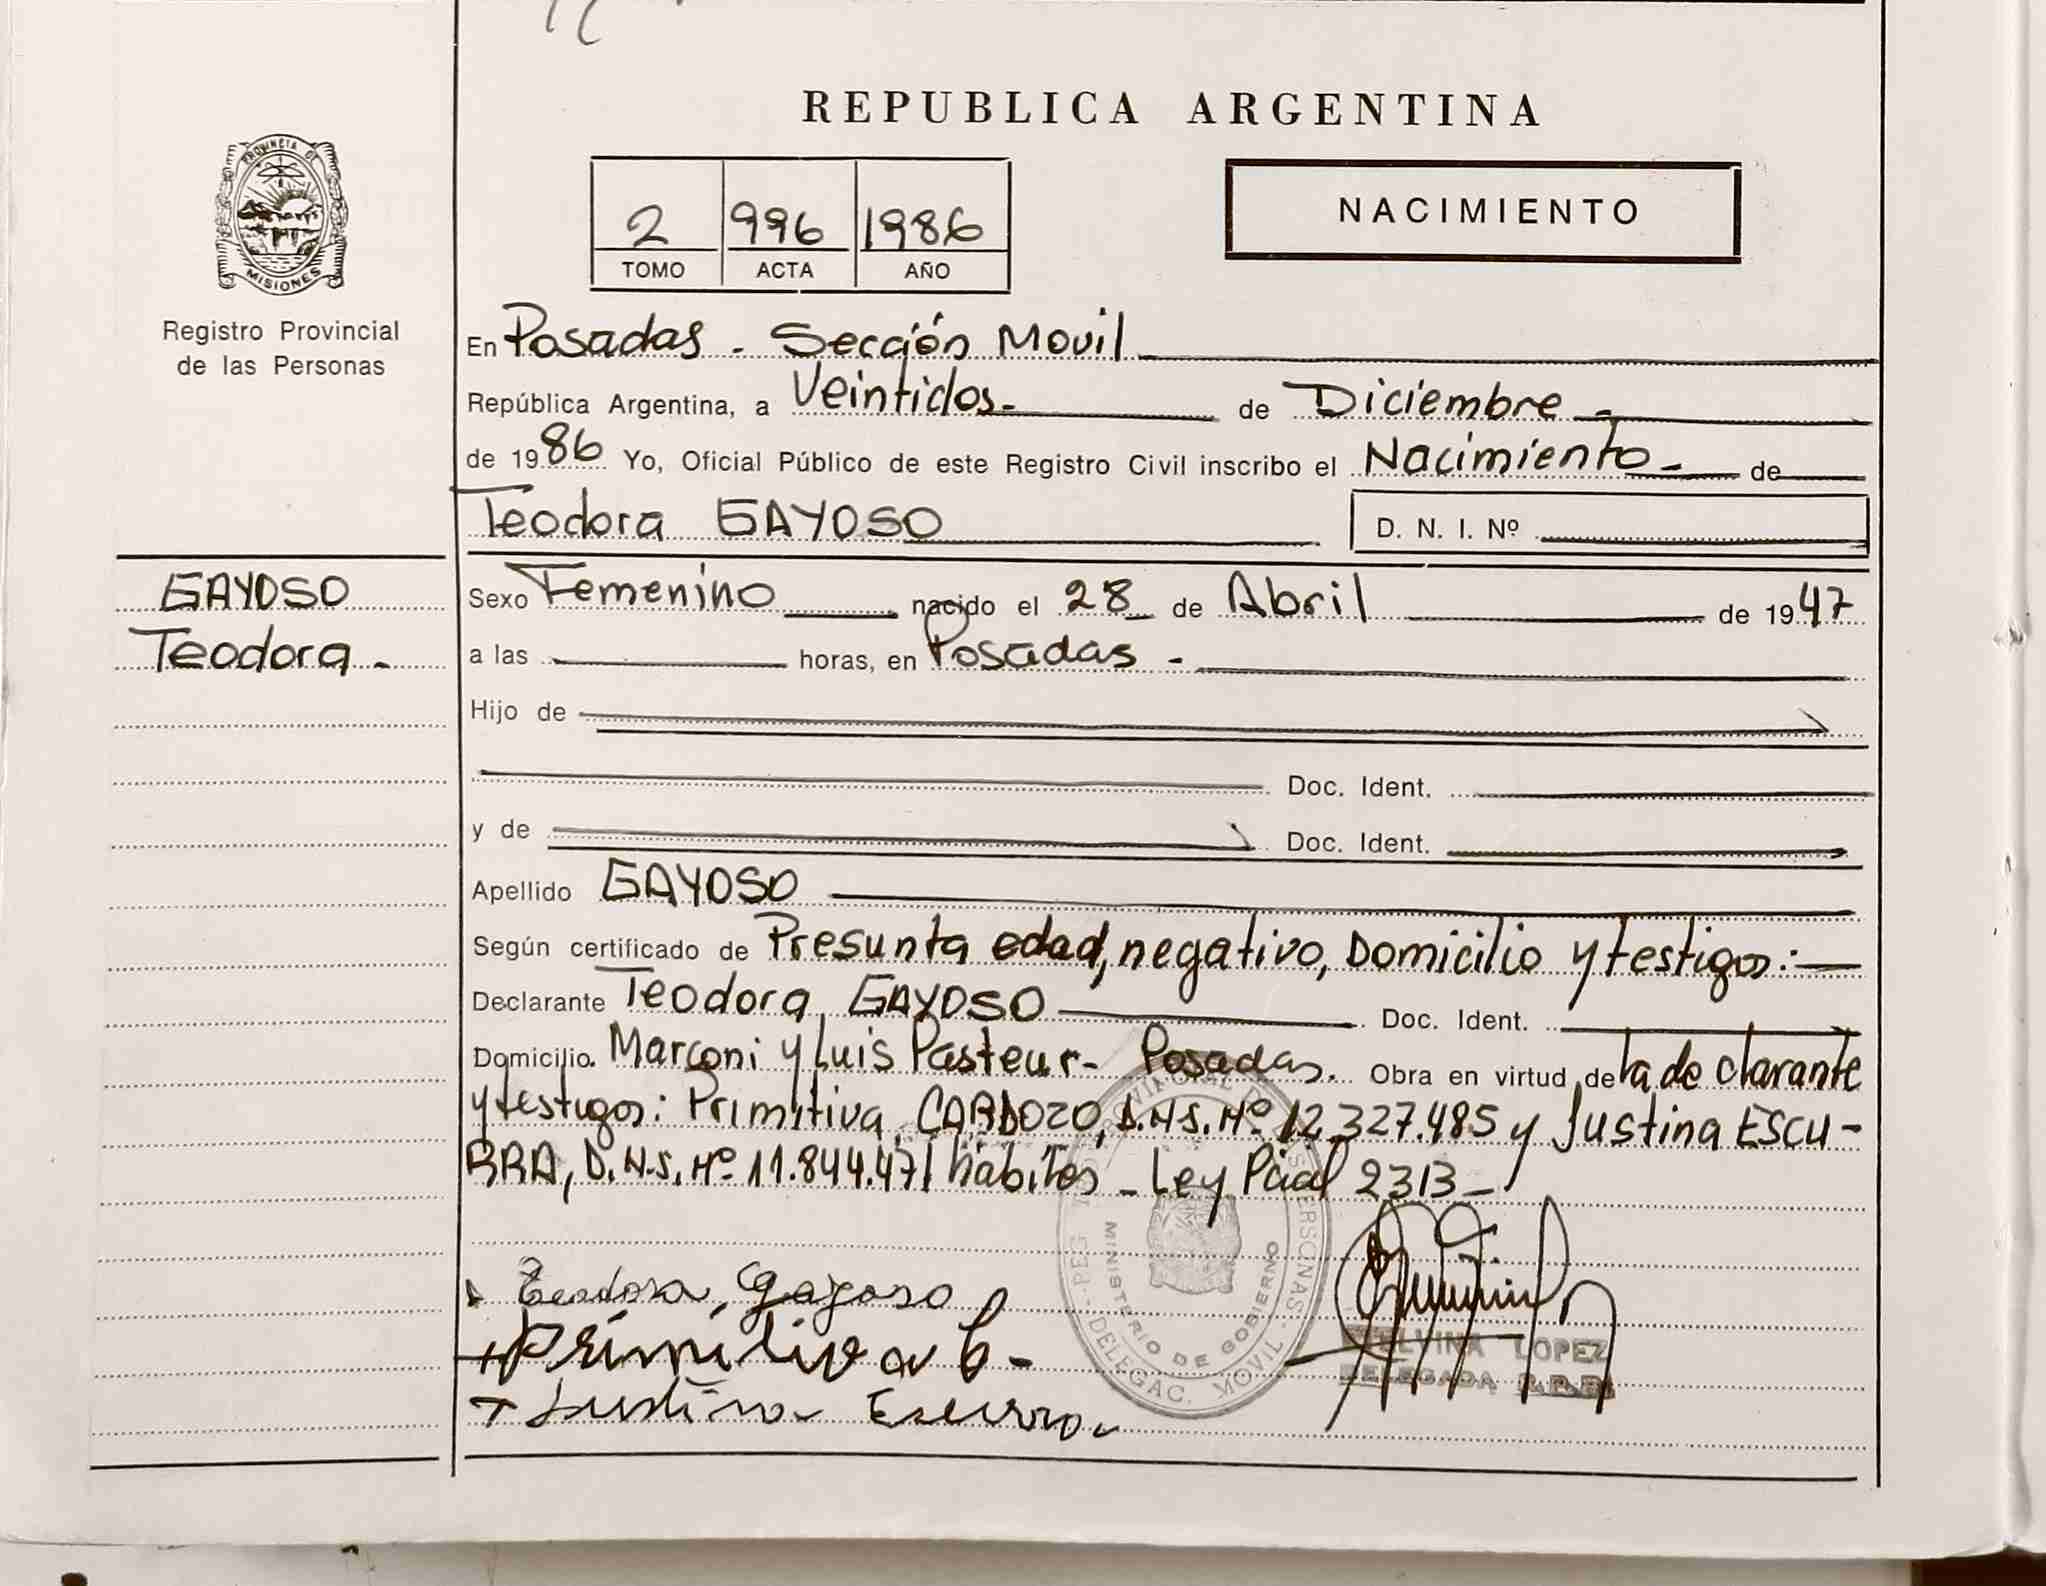 REPUBLICA ARGENTINA
PROVINCIA DE
MISIONES
Registro Provincial
de las Personas
2 996 1986
TOMO ACTA AÑO
NACIMIENTO
En Posadas - Sección Movil
República Argentina, a Veintidos - de Diciembre -
de 1986 Yo, Oficial Público de este Registro Civil inscribo el Nacimiento - de
Teodora GAYOSO D. N. I. Nº
GAYOSO
Teodora -
Sexo Femenino nacido el 28 de Abril de 1947
a las horas, en Posadas -
Hijo de
Doc. Ident.
y de Doc. Ident.
Apellido GAYOSO
Según certificado de Presunta edad, negativo, Domicilio y testigos: —
Declarante Teodora GAYOSO Doc. Ident.
Domicilio Marconi y Luis Pasteur - Posadas. Obra en virtud de la declarante
y testigos: Primitiva CARDOZO, D.N.I. Nº 12.327.485 y Justina ESCU-
RRA, D.N.I. Nº 11.844.471 habites - Ley Pcial 2313 -
Teodora Gayoso
Primitiva C -
Justina Escurra
MINISTERIO DE GOBIERNO
DELEGAC. MOVIL
ELVINA LOPEZ
DELEGADA R.P.P.